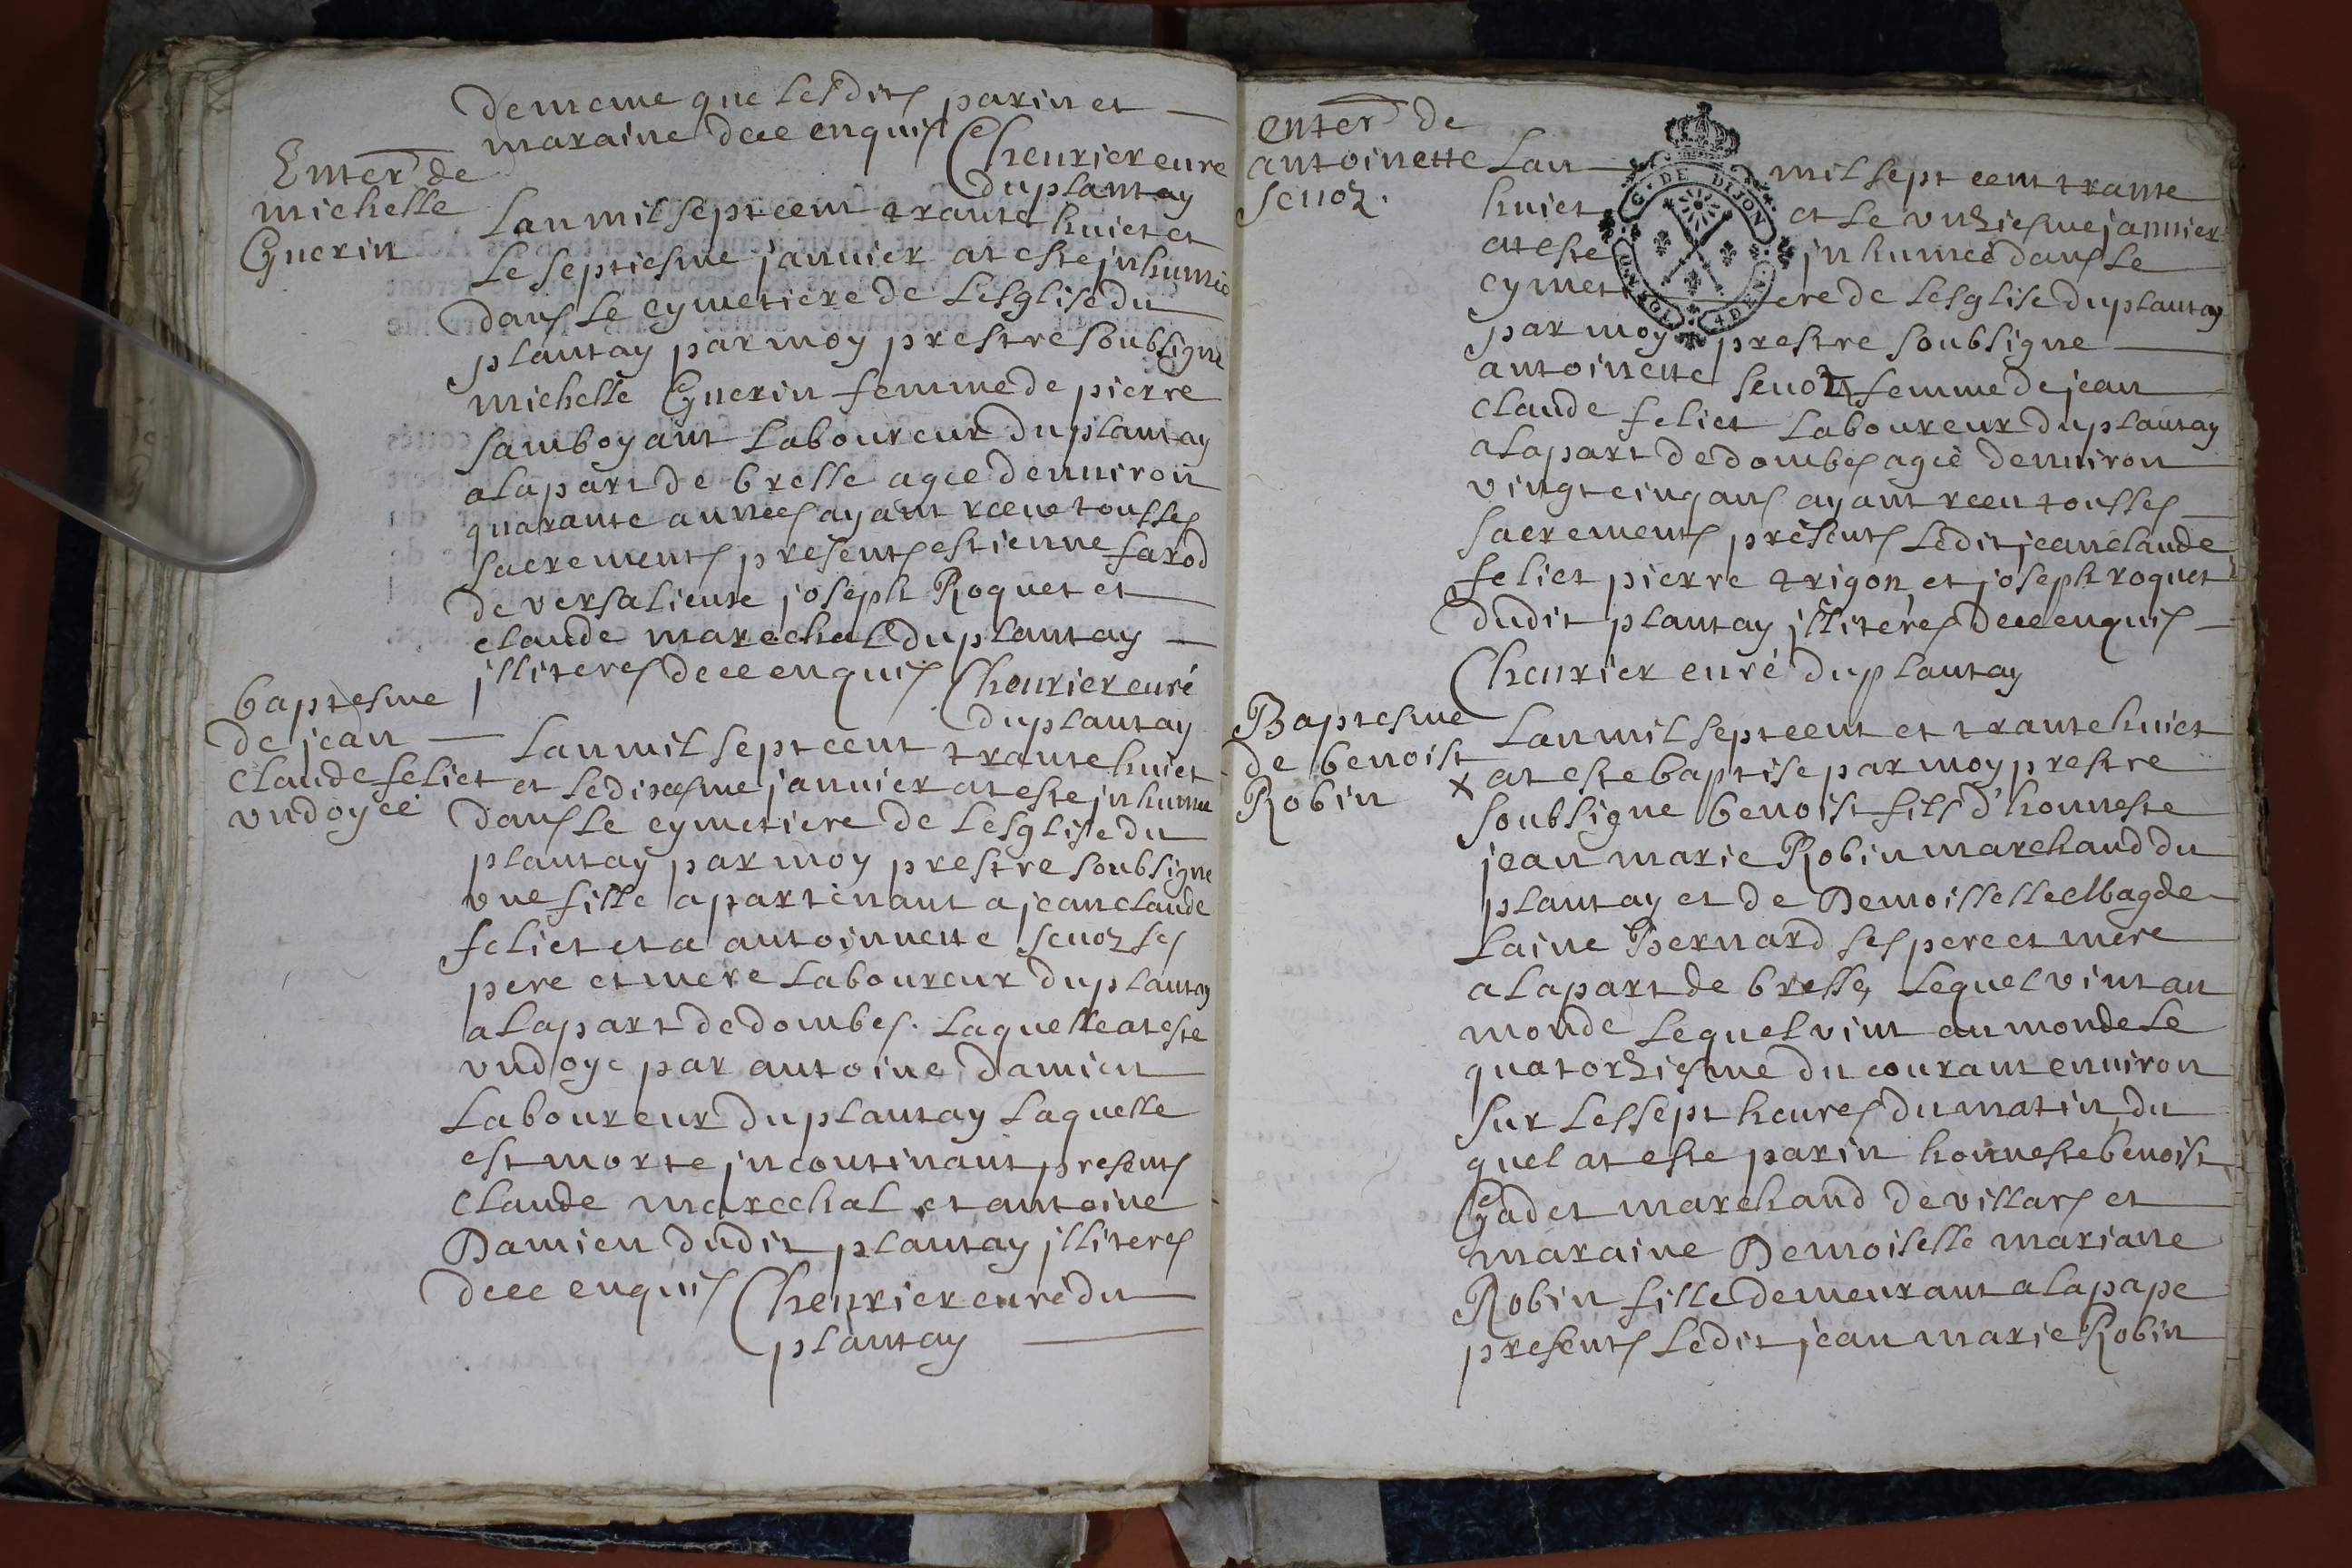 demême que lesdits parin et
maraine de ce enquis Cheurier curé
du plantay
Enter de
michelle
Guerin
Lan mil sept cent trante huict et
le septiesme januier at este jnhumée
dans le cymetiere de Lesglise du
plantay par moy prestre soubsigné
michelle Guerin femme de pierre
samboyant Laboureur du plantay
a la part de bresse agee denuiron
quarante années ayant receue tous ses
sacrements presents estienne farod
de versalieure joseph Roquet et
claude marechal du plantay
jlliteres de ce enquis Cheurier curé
du plantay
baptesme
de jean
Claude feliet
vndoyeé
Lan mil sept cent trante huict
et le dixesme januier at este jnhumé
dans le cymetiere de Lesglise du
plantay par moy prestre soubsigné
vne fille apartenant a jean claude
feliet et a antoinnette senoz ses
pere et mere Laboureur du plantay
a la part de dombes. Laquelle at este
vndoye par antoine damien
Laboureur du plantay Laquelle
est morte jncontinant presents
Claude marechal et antoine
Damien dudit plantay jlliteres
de ce enquis Cheurier curé du
plantay
enter de
antoinette
senoz.
G. DE DIJON
4 DEN.
Lan mil sept cent trante
huict et le vnziesme januier
at este jnhumeé dans le
cymetiere de Lesglise du plantay
par moy prestre soubsigne
antoinette senoz femme de jean
claude feliet Laboureur du plantay
a la part de dombes ageè denuiron
vingt cinq ans ayant receu tous ses
sacrements presents Ledit jean claude
feliet pierre trigon et joseph roquet
dudit plantay jlliterés de ce enquis
Cheurier curé du plantay
Baptesme
de benoist
Robin
Lan mil sept cent et trante huict
x at este baptise par moy prestre
soubsigne benoist fils d'honneste
jean marie Robin marchand du
plantay et de Demoisselle Magde
Laine Bernard ses pere et mere
a la part de bresse, Lequel vint au
monde Lequel vint au monde le
quatorziesme du courant enuiron
sur Les sept heures du matin du
quel at este parin honneste benoist
Gadet marchand de villars et
maraine Demoiselle mariane
Robin fille demeurant a la pape
presents Ledit jean marie Robin